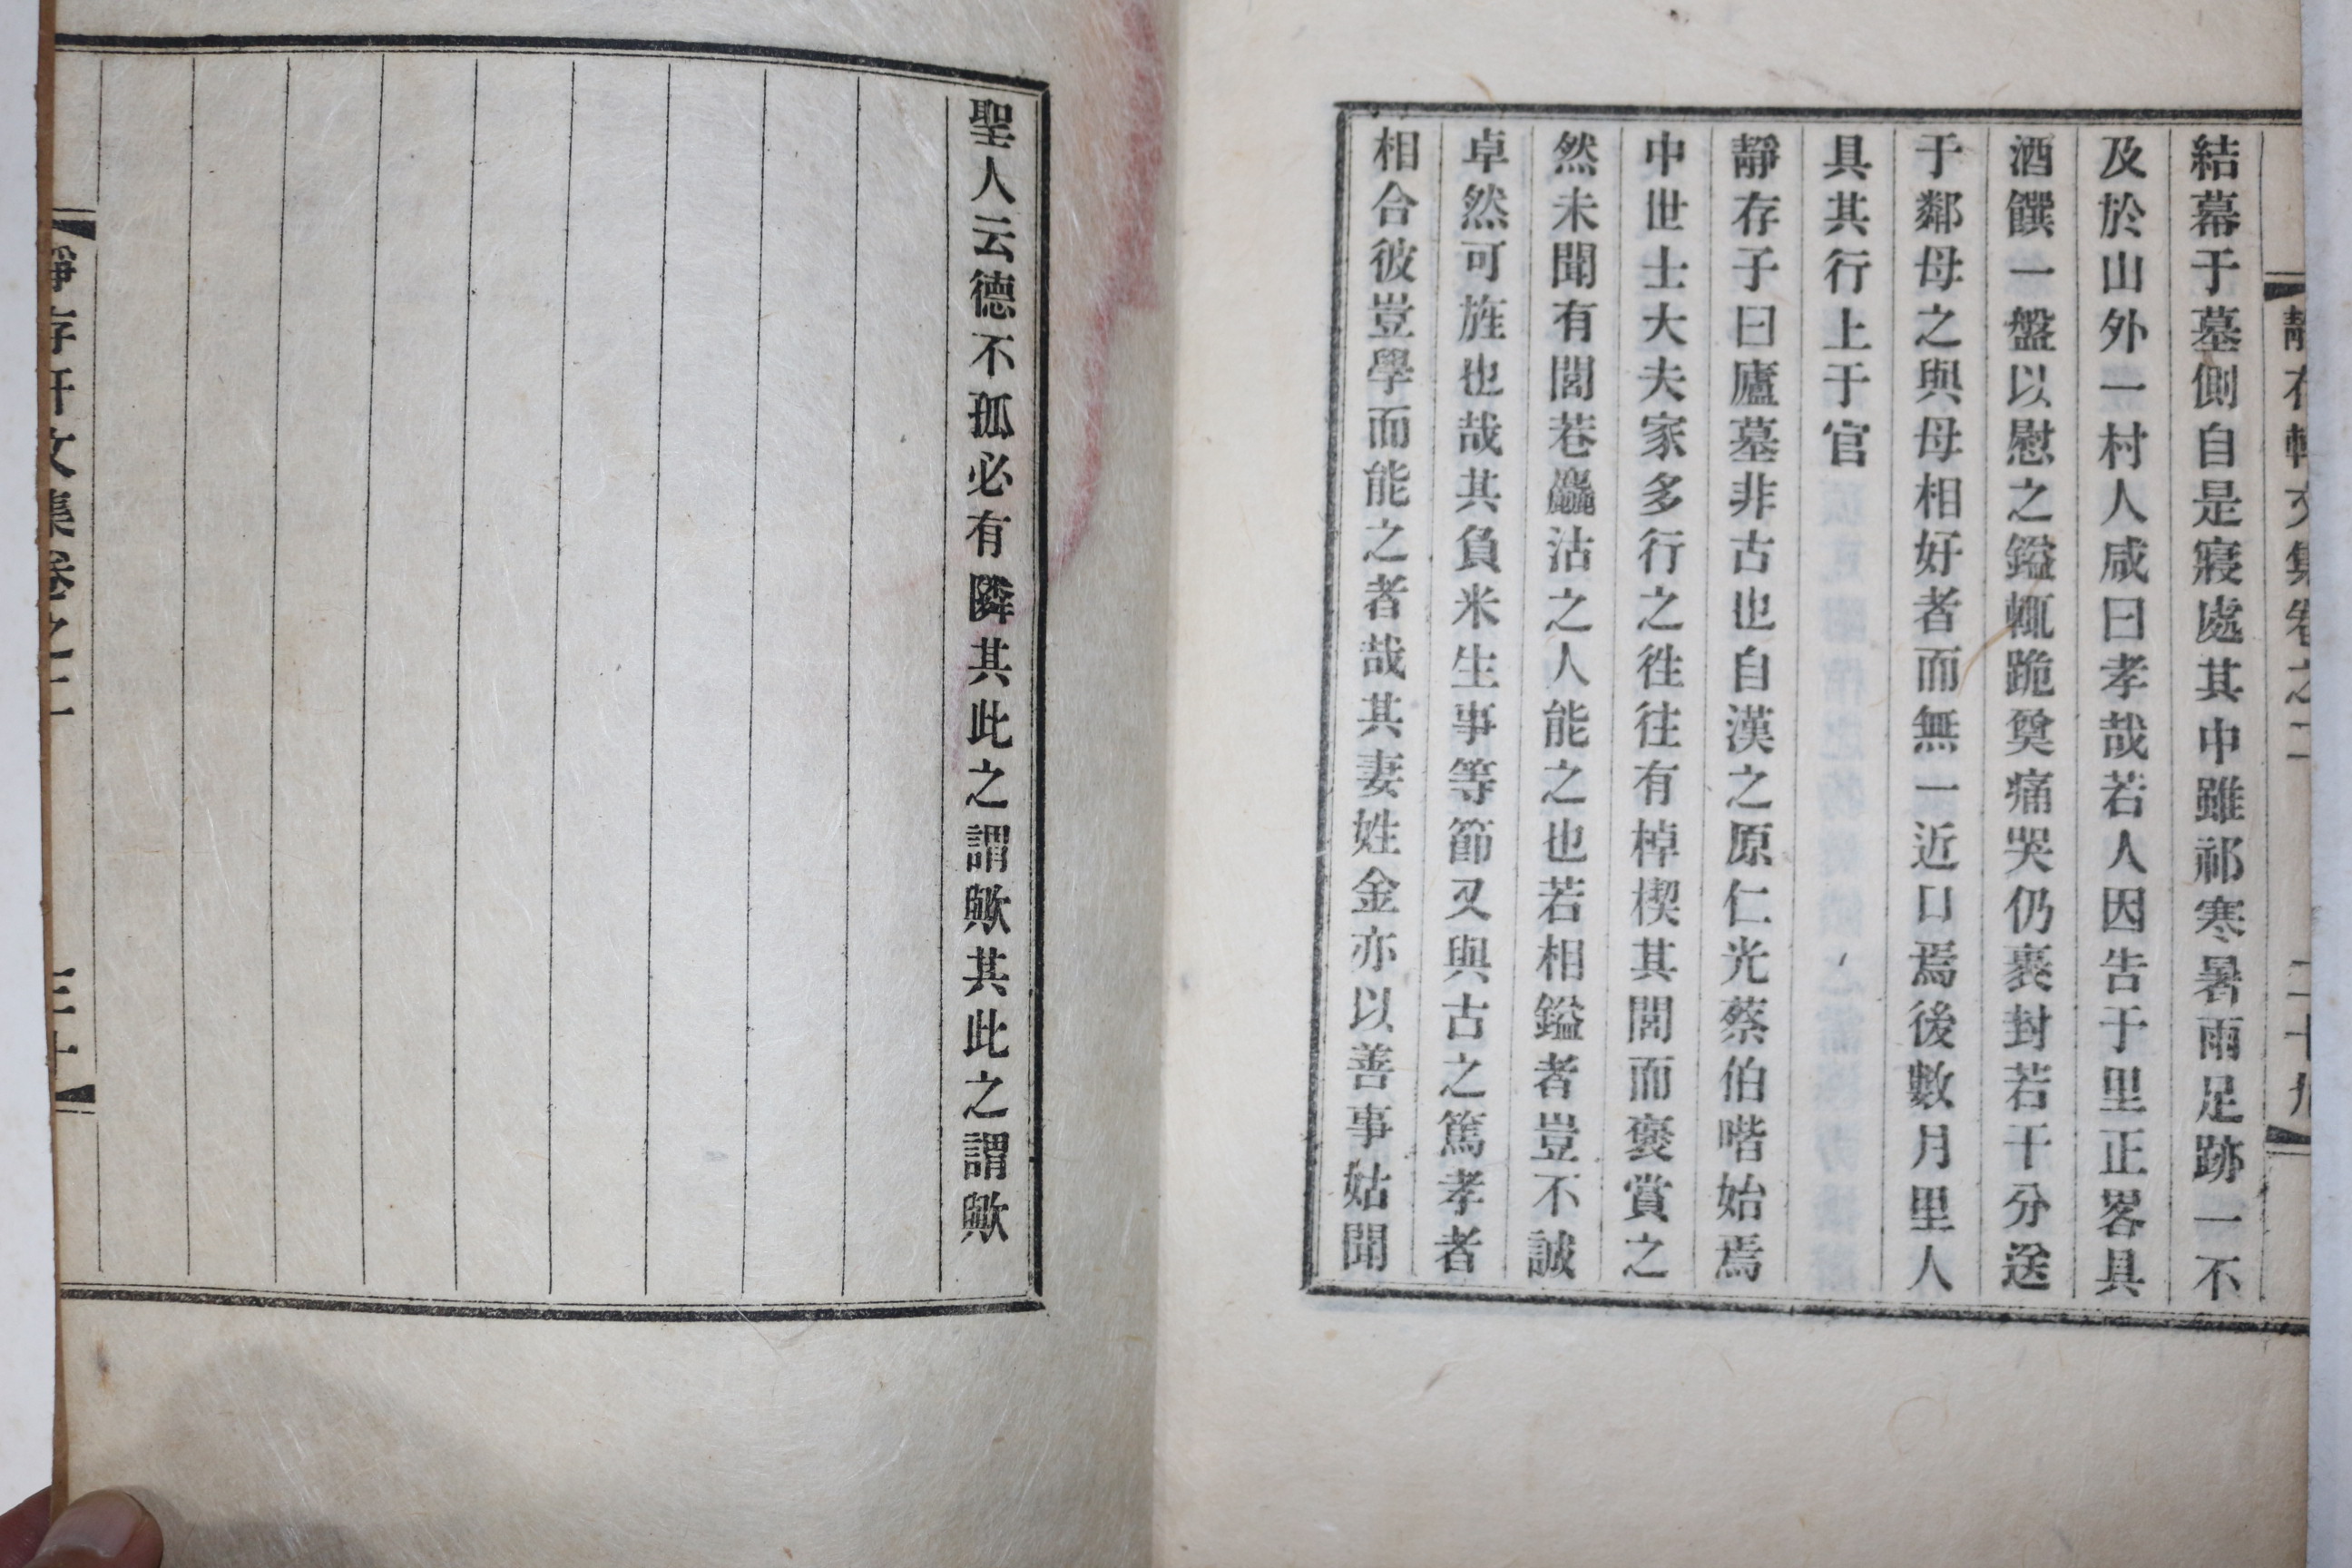 結幕于墓側自是寢處其中雖祁寒暑雨足跡一不
及於山外一村人咸曰孝哉若人因告于里正畧具
酒饌一盤以慰之鎰輒跪奠痛哭仍裹封若干分送
于鄰母之與母相好者而無一近口焉後數月里人
具其行上于官
靜存子曰廬墓非古也自漢之原仁光蔡伯喈始焉
中世士大夫家多行之徃往有棹楔其閭而褒賞之
然未聞有閭巷麤沽之人能之也若相鎰者豈不誠
卓然可旌也哉其負米生事等節又與古之篤孝者
相合彼豈學而能之者哉其妻姓金亦以善事姑聞
聖人云德不孤必有隣其此之謂歟其此之謂歟